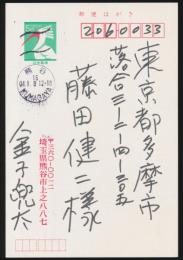 郵便はがき
2060033
東京都多摩市
落合三-二-四-三〇五
藤田健二様
埼玉県熊谷市上之八八七
金子兜太
熊谷
KUMAGAYA